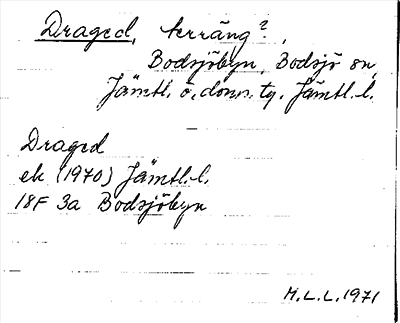 Draged, terräng?,
Bodsjöbyn, Bodsjö sn,
Jämtl. ö. doms. tg. Jämtl. l.
Draged
ek (1970) Jämtl. l.
18F 3a Bodsjöbyn
M.L.L. 1971